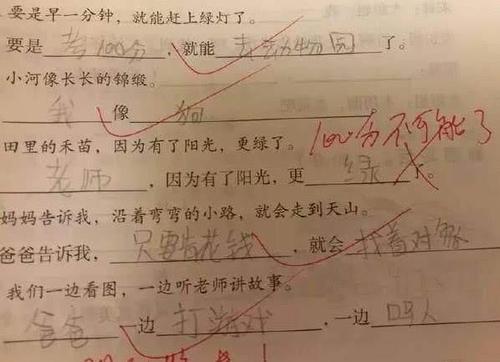 要是早一分钟，就能赶上绿灯了。
要是考100分，就能去动物园了。
小河像长长的锦缎。
我像狗
田里的禾苗，因为有了阳光，更绿了。
100分不可能了
老师，因为有了阳光，更绿了。
妈妈告诉我，沿着弯弯的小路，就会走到天山。
爸爸告诉我，只要肯花钱，就会找着对象
我们一边看图，一边听老师讲故事。
爸爸一边打游戏，一边骂人